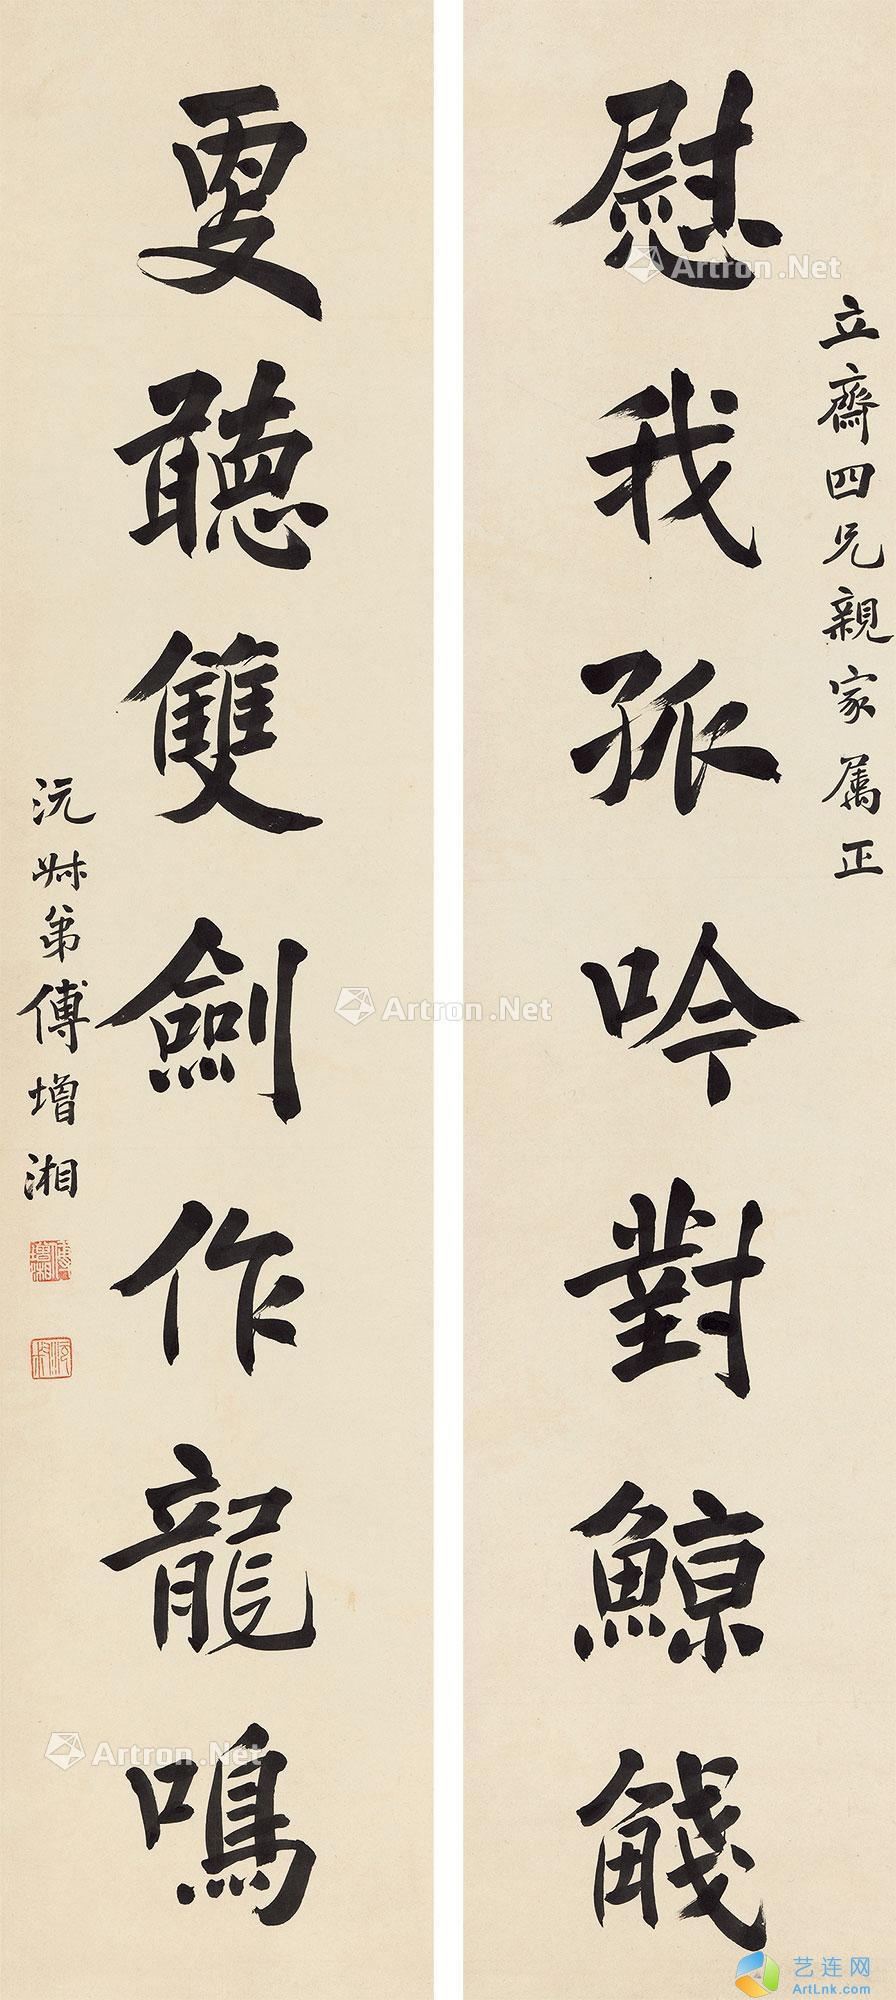 立齋四兄親家屬正
慰我孤吟對鯨
更聽雙劍作龍鳴
沅叔弟傅增湘
傅增湘
沅叔
Artron.Net
Artron.Net
Artron.Net
艺连网
ArtLnk.com